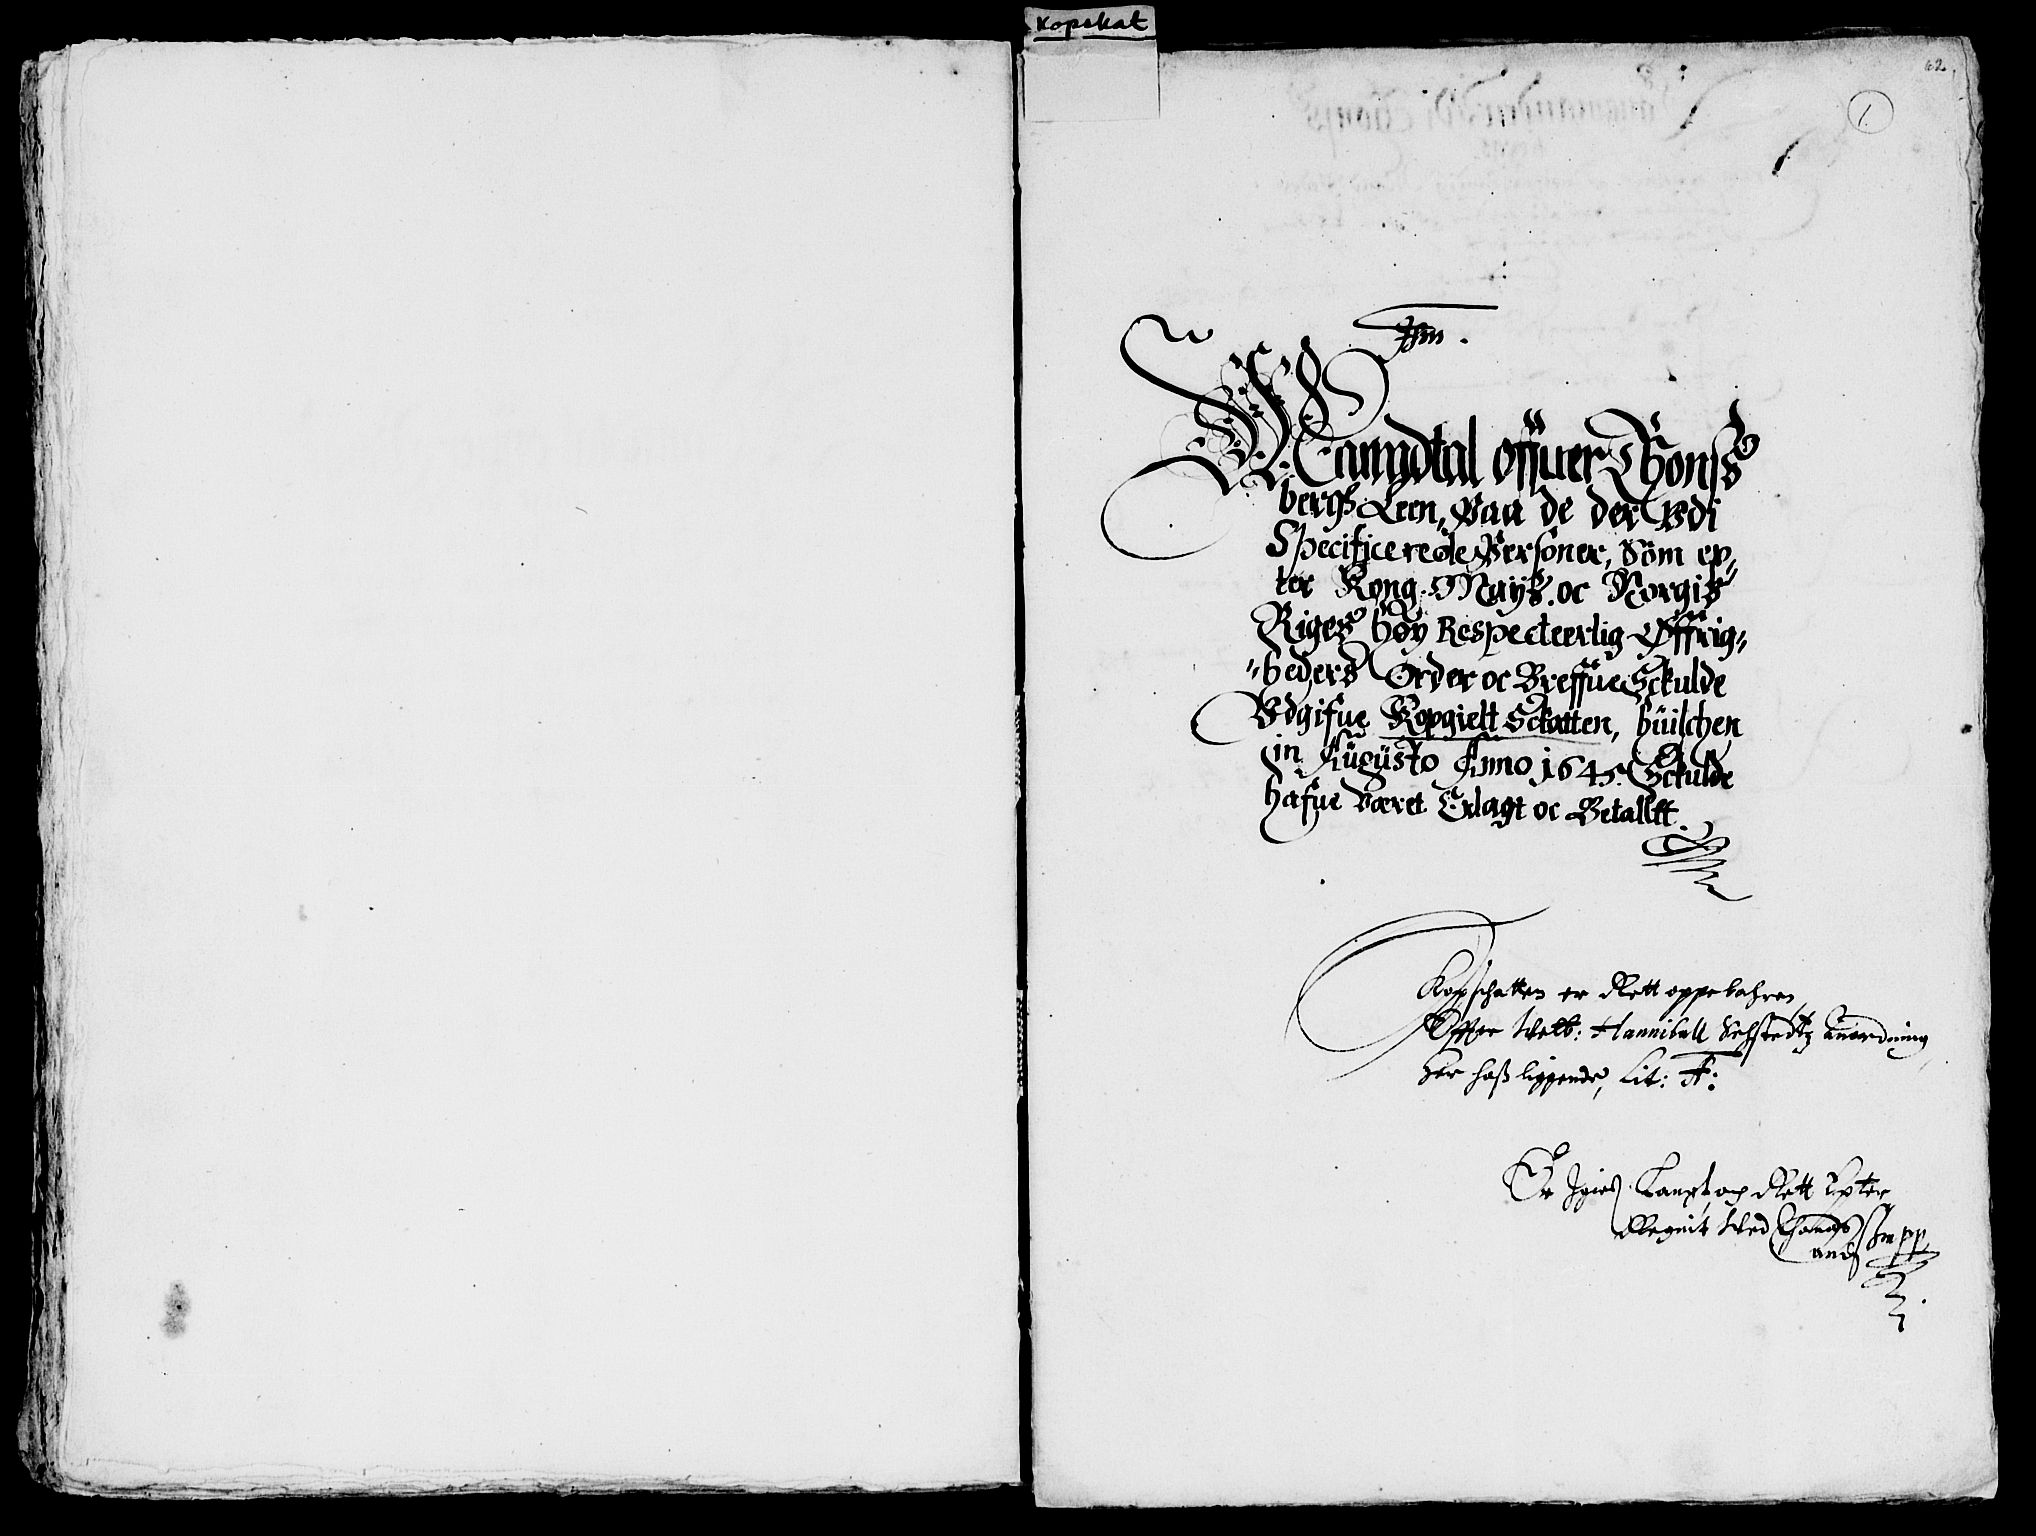 Kopskat
62
1.
Jhm.
Manndtal offuer Tonsß
bergß Leen, Paa de der Vdi
Specificerede Personer, Som ep„
ter Kong. Mayß. oc Norgis
Riges høy Respecteerlig Øffrig„
„heders Order oc Breffue Schulde
Vdgifue Kopgielt Schatten, huilchen
in Augusto Anno 1645. Schulde
hafue Været Erlagt oc Betallt.
Kopschatten er Rett oppebahren
Effter Welb: Hanniball Sehstedtz anordning
her hoß liggende, Lit: A:
Er Igien Rett Epter
Regnit Wed